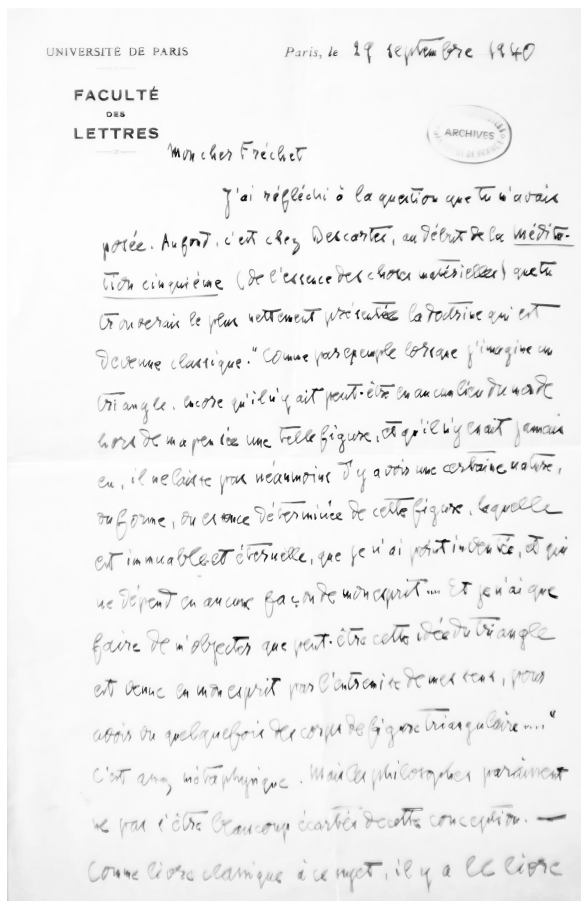 UNIVERSITÉ DE PARIS
Paris, le 29 septembre 1940
FACULTÉ
DES
LETTRES
ARCHIVES
Mon cher Fréchet
J'ai réfléchi à la question que tu m'avais
posée. Au fond, c'est chez Descartes, au début de la Médita-
tion cinquième (de l'essence des choses matérielles) que tu
trouverais le plus nettement présentée la doctrine qui est
devenue classique. "Comme par exemple lorsque j'imagine un
triangle, encore qu'il n'y ait peut-être en aucun lieu du monde
hors de ma pensée une telle figure, et qu'il n'y en ait jamais
eu, il ne laisse pas néanmoins d'y avoir une certaine nature,
ou forme, ou essence déterminée de cette figure, laquelle
est immuable et éternelle, que je n'ai point inventée, et qui
ne dépend en aucune façon de mon esprit.... Et je n'ai que
faire de m'objecter que peut-être cette idée du triangle
est venue en mon esprit par l'entremise de mes sens, pour
avoir vu quelquefois des corps de figure triangulaire...."
C'est assez métaphysique. Mais les philosophes paraissent
ne pas s'être beaucoup écartés de cette conception. —
Comme livre classique à ce sujet, il y a le livre